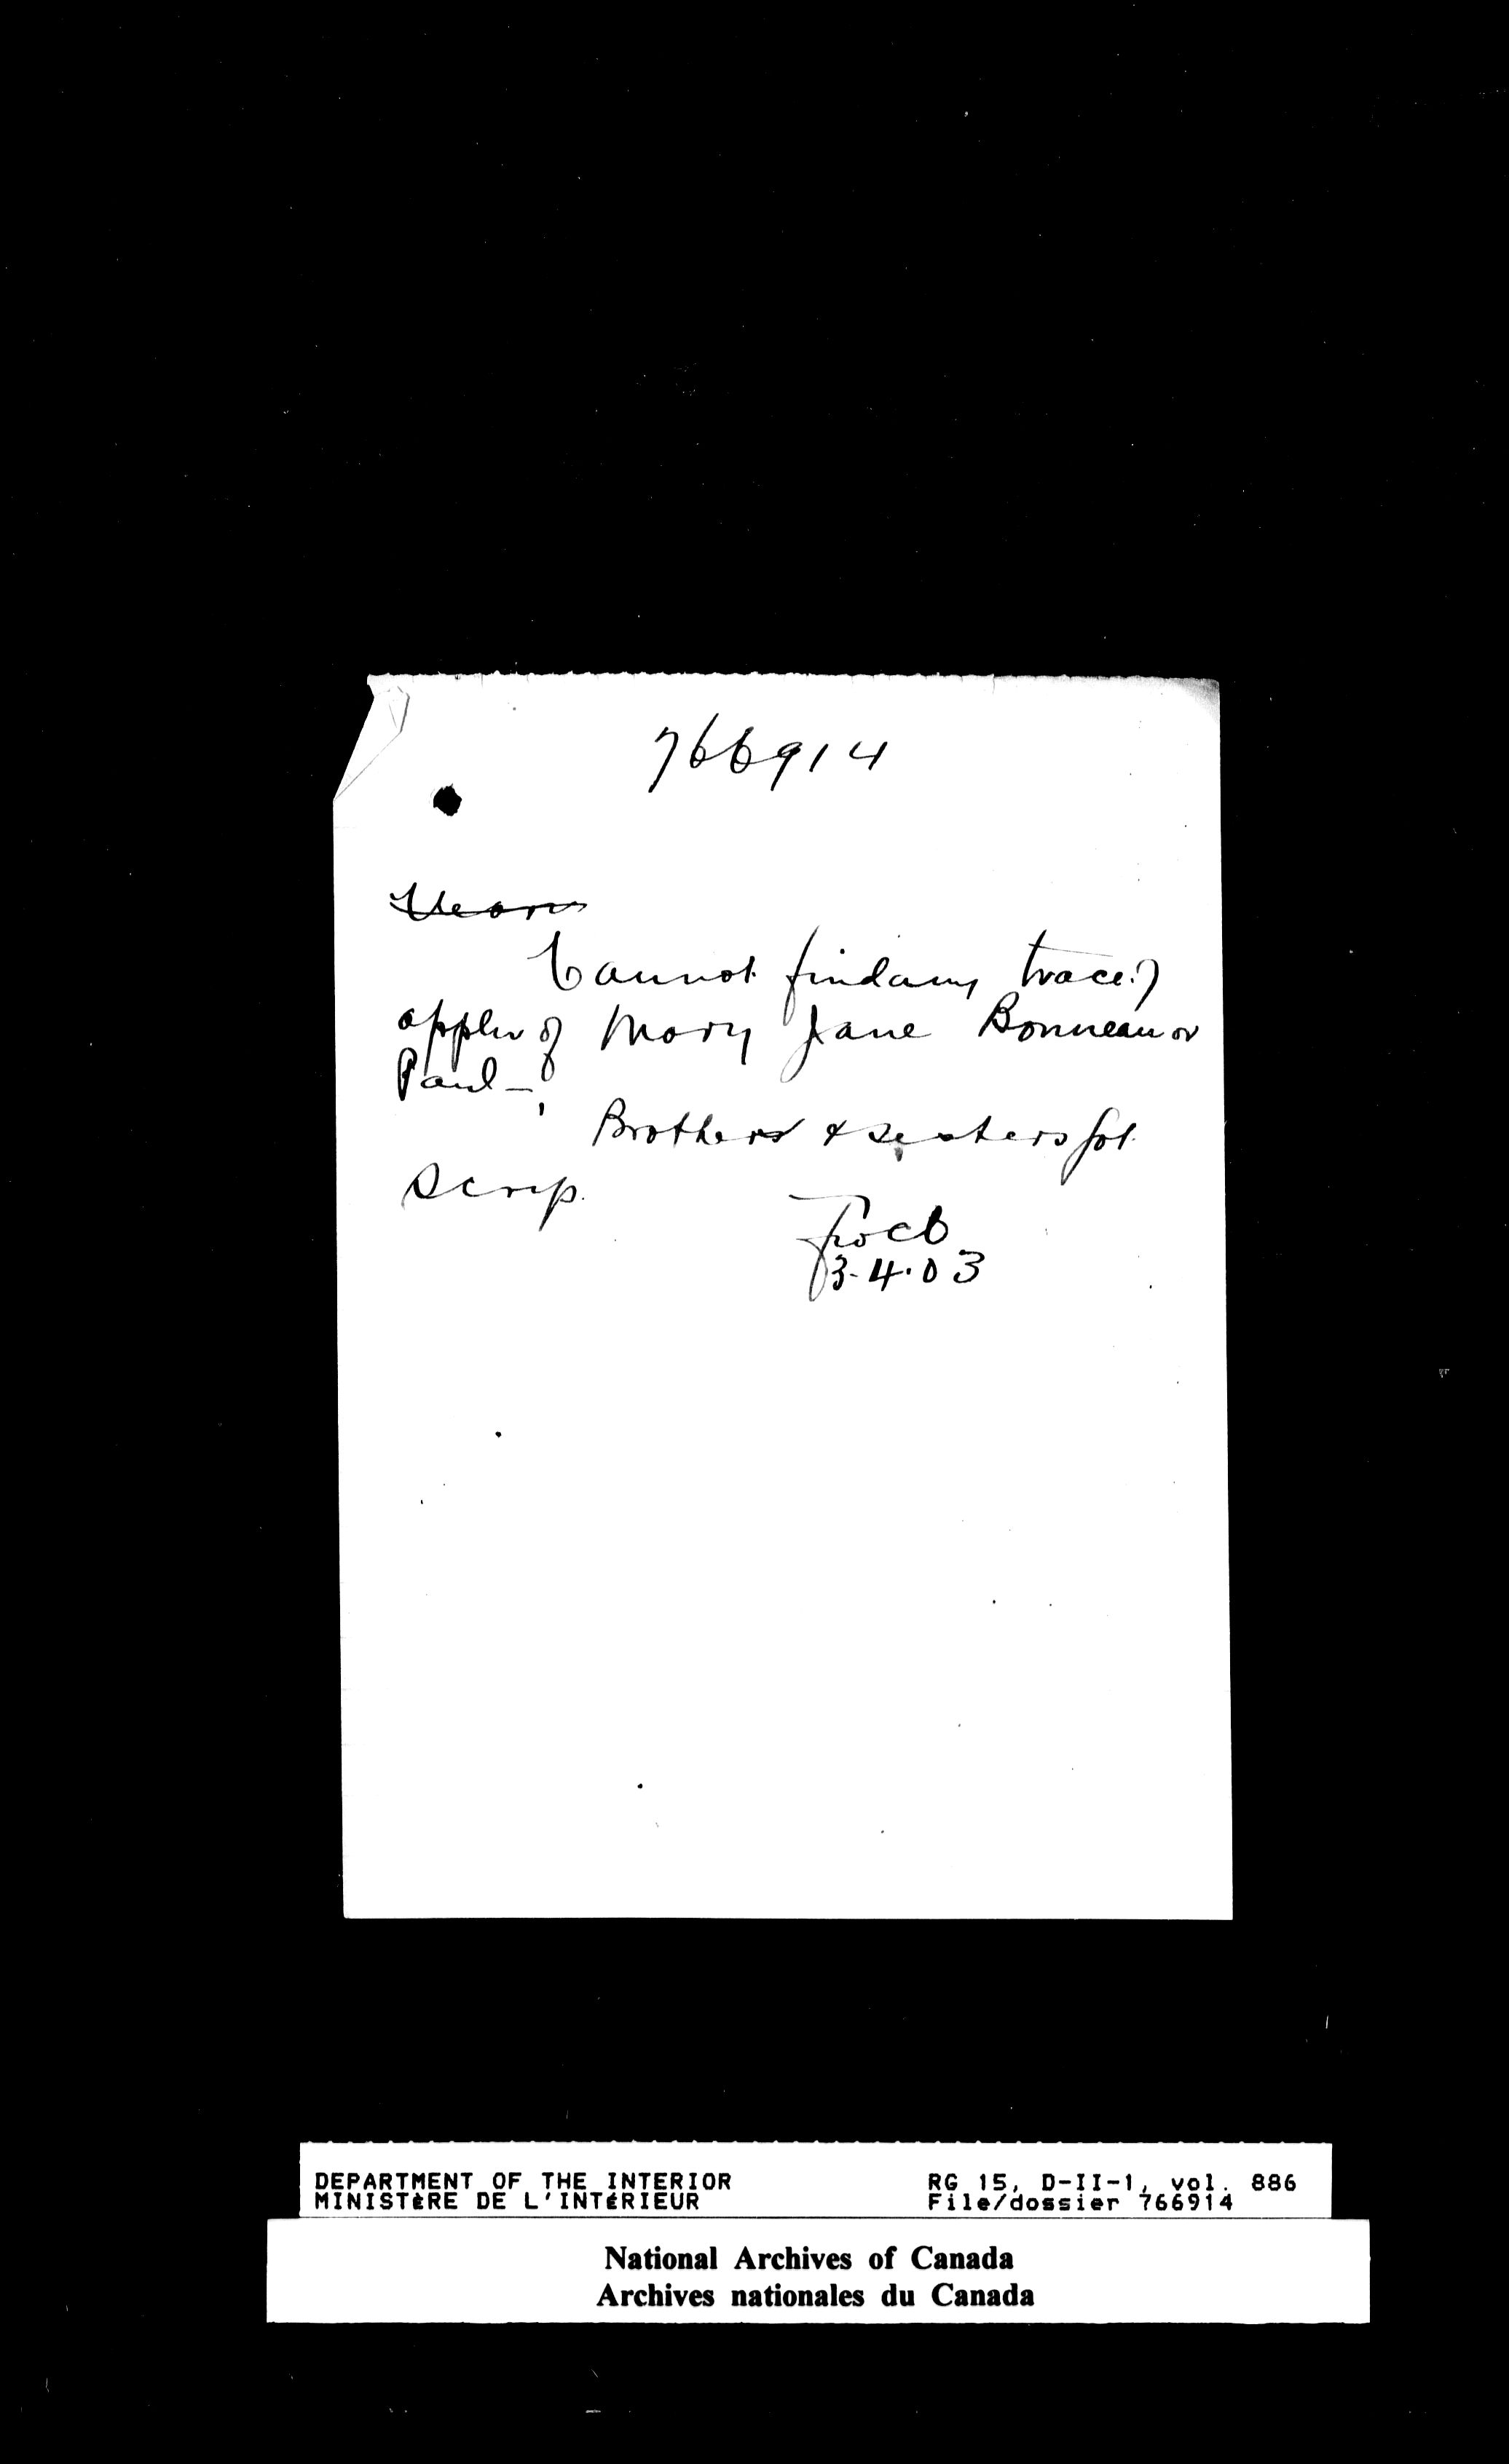 766914
Memo
Cannot find any trace of
appln of Mary Jane Bonneau or
Paul –
Brothers & sisters got
Scrip.
3-4-03
DEPARTMENT OF THE INTERIOR RG 15, D-II-1, vol. 886
MINISTÈRE DE L'INTÉRIEUR File/dossier 766914
National Archives of Canada
Archives nationales du Canada